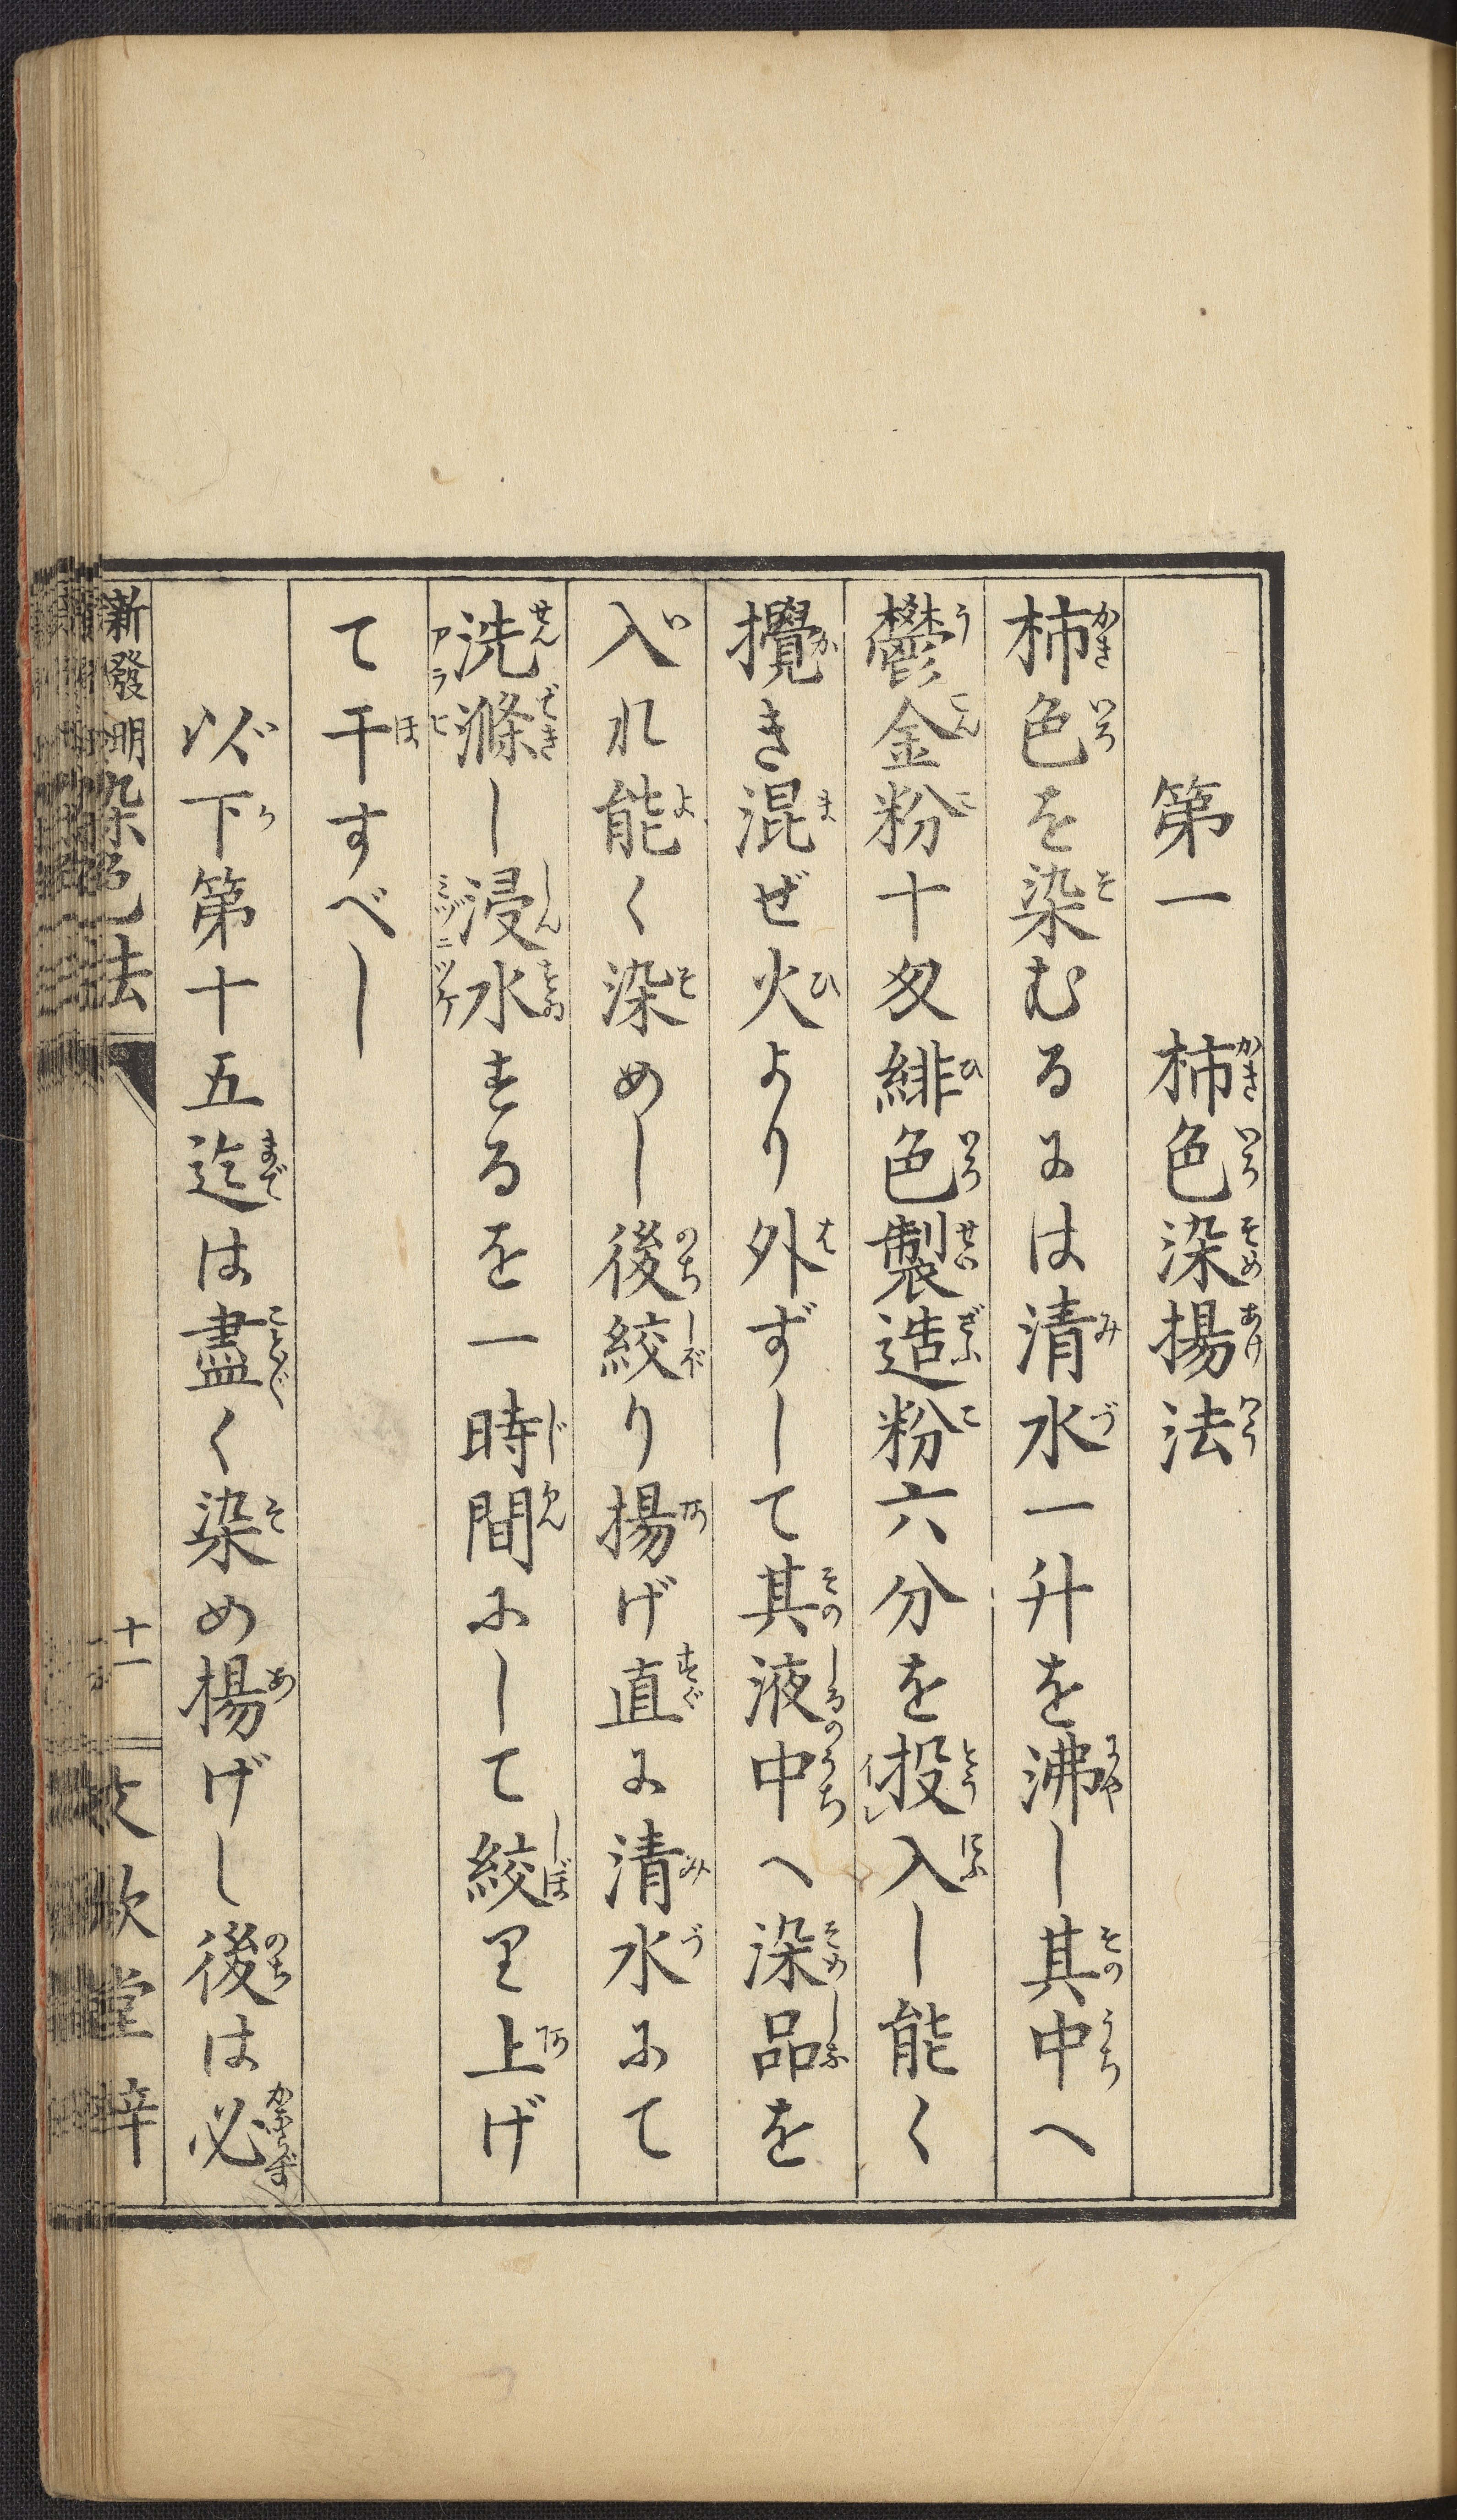 第一　柿色染揚法
柿色を染むるには清水一升を沸し其中へ
鬱金粉十匁緋色製造粉六分を投入し能く
攪き混ぜ火より外ずして其液中へ染品を
入れ能く染めし後絞り揚げ直に清水にて
洗滌し浸水するを一時間にして絞り上げ
て干すべし
以下第十五迄は盡く染め揚げし後は必
新發明染色法
十一